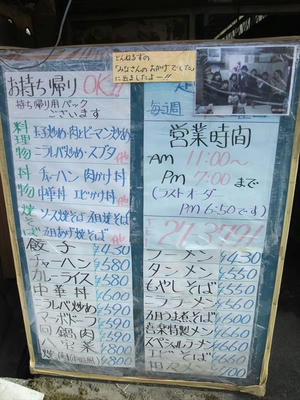 とんねるずの
「みなさんのおかげでした」
に出ましたよー!!
お持ち帰り OK!!
持ち帰り用パック
ございます
毎週
営業時間
AM 11:00～
Pm 7:00 まで
(ラストオーダー
Pm 6:50です)
料理物
玉子炒め・肉とピーマン炒め
ニラレバ炒め・スブタ 他
丼物
チャーハン 肉かけ丼
中華丼 エビかけ丼 他
焼そば
ソース焼そば
五目あげ焼そば 他
餃子 ¥430
チャーハン ¥580
カレーライス ¥580
中華丼 ¥600
ニラレバ炒め ¥590
マーボドーフ ¥590
回鍋肉 ¥590
八宝菜 ¥800
ラーメン ¥430
タンメン ¥550
もやしそば ¥550
ニララーメン ¥550
五目うま煮そば ¥660
特製メン ¥660
スペシャルラーメン ¥660
エビそば ¥660
坦々メン ¥700